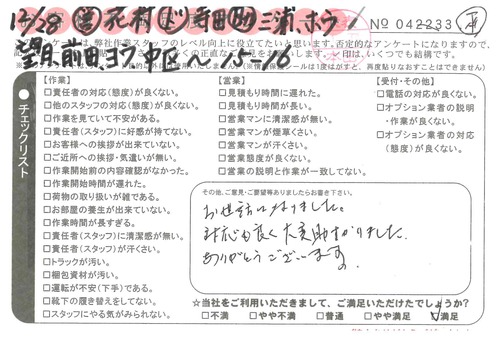 12/28 営 花村 ド 寺田 助 三浦、ホウ
No 042233
望月、前田 ヨコ 中区へ 15-16
弊社作業スタッフのレベル向上に役立てたいと思います。否定的なアンケートになりますので、
チェックリスト
【作業】
□責任者の対応(態度)が良くない。
□他のスタッフの対応(態度)が良くない。
□作業を見ていて不安がある。
□責任者(スタッフ)に好感が持てない。
□お客様への挨拶が出来ていない。
□ご近所への挨拶・気遣いが無い。
□作業開始前の内容確認がなかった。
□作業開始時間が遅れた。
□荷物の取り扱いが雑である。
□お部屋の養生が出来ていない。
□作業時間が長すぎる。
□責任者(スタッフ)に清潔感が無い。
□責任者(スタッフ)が汗くさい。
□トラックが汚い。
□梱包資材が汚い。
□運転が不安(下手)である。
□靴下の履き替えをしてない。
□スタッフにやる気がみられない。
【営業】
□見積もり時間に遅れた。
□見積もり時間が長い。
□営業マンに清潔感が無い。
□営業マンが煙草くさい。
□営業マンが汗くさい。
□営業態度が良くない。
□営業の説明と作業が一致してない。
【受付・その他】
□電話の対応が良くない。
□オプション業者の説明・作業が良くない。
□オプション業者の対応(態度)が良くない。
その他、ご意見・ご要望等ありましたらお書き下さい。
お世話になりました。
対応も良く大変助かりました。
ありがとうございます。
☆当社をご利用いただきまして、ご満足いただけたでしょうか?
□不満 □やや不満 □普通 □やや満足 ☑満足